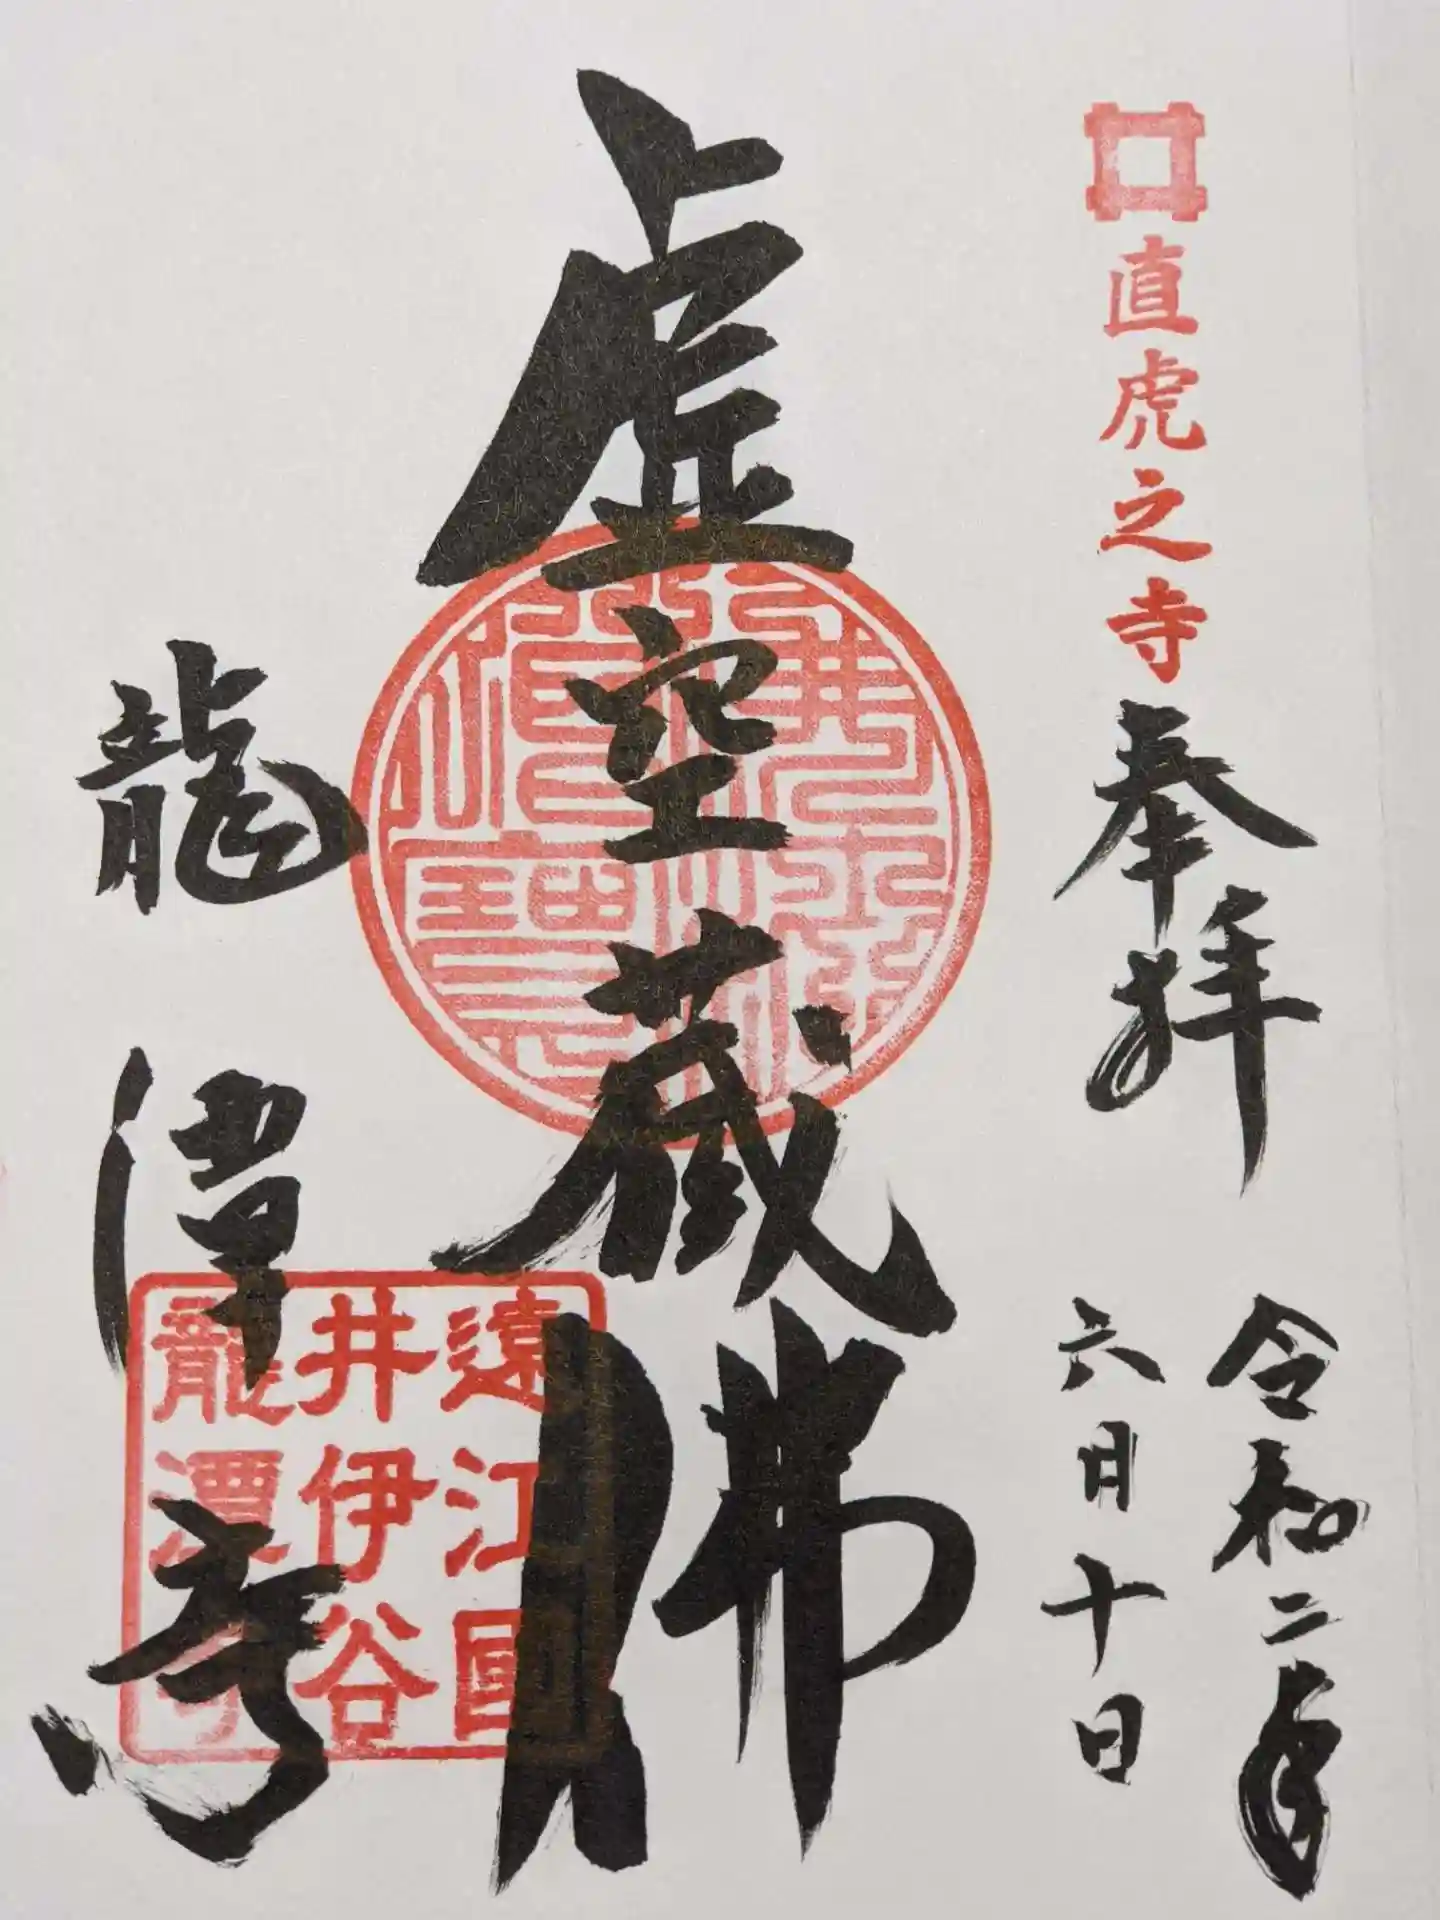 直虎之寺
奉拝
令和二年
六月十日
虚空蔵佛
遠江國
井伊谷
龍潭寺
龍潭寺